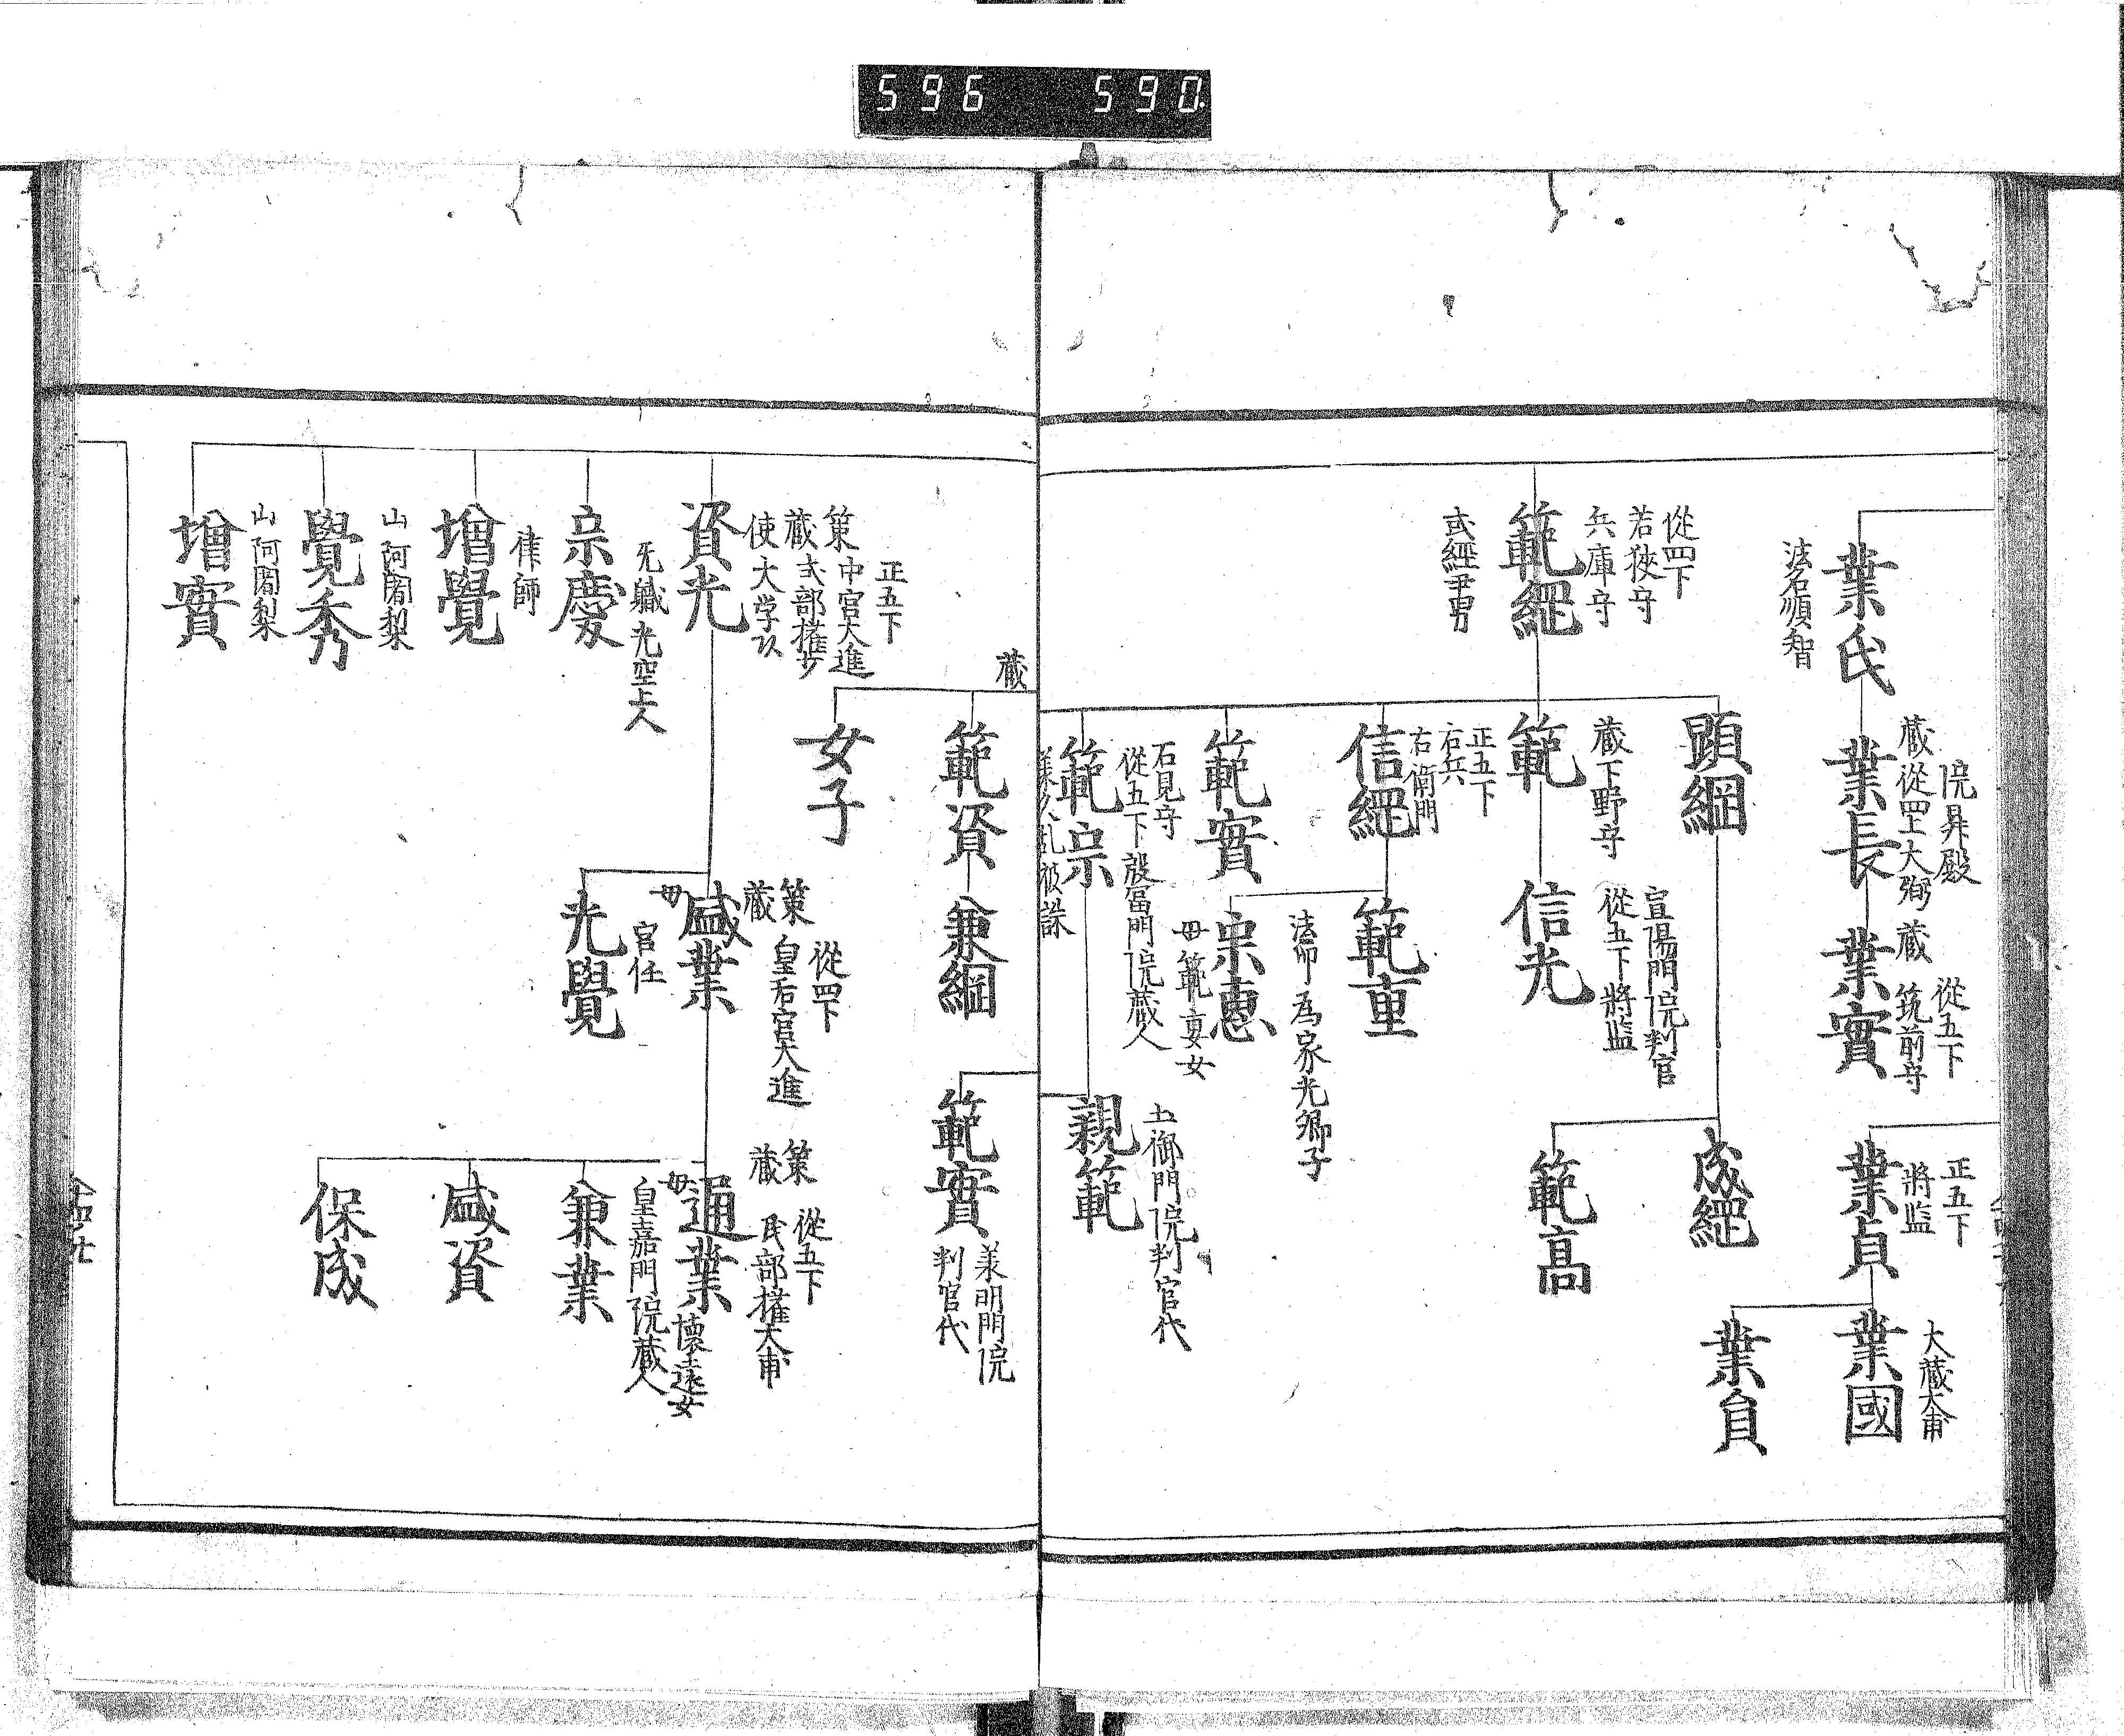 596 590.
業氏
法名順智
院昇殿
蔵從四上大弼
業長
蔵
從五下
筑前守
業實
正五下
將監
業貞
大蔵大甫
業國
業員
從四下
若狹守
兵庫守
範經
式經尹男
顕綱
成經
範高
蔵下野守
範
宣陽門院判官
從五下將監
信光
正五下
右兵
右衛門
信經
範重
法印為家光卿子
宗惠
母範重妻女
範實
石見守
從五下殷富門院蔵人
範宗
土御門院判官代
親範
蔵
範資
兼綱
範實
義明門院
判官代
女子
正五下
策中宮大進
蔵式部権少
使大学以
資光
策
蔵
從四下
皇后宮大進
盛業
母
官仕
光覺
策
蔵
從五下
民部権大甫
通業
母
懐遠女
皇嘉門院蔵人
兼業
盛資
保成
宗慶
旡軄光空上人
律師
増覺
山阿闍梨
覺秀
山阿闍梨
増實